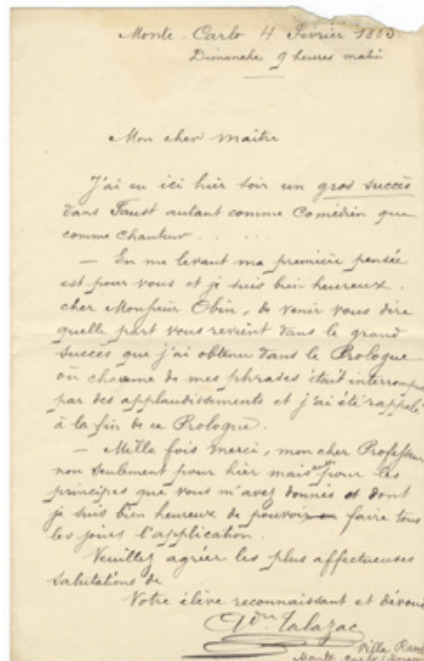 Monte-Carlo 4 Février 1883
Dimanche 9 heures matin
Mon cher Maître
J'ai eu ici hier soir un gros succès
dans Faust autant comme Comédien que
comme Chanteur . . . .
— En me levant ma première pensée
est pour vous et je suis bien heureux
cher Monsieur Obin, de venir vous dire
quelle part vous revient dans le grand
succès que j'ai obtenu dans le Prologue
où chacune de mes phrases était interrompue
par des applaudissements et j'ai été rappelé
à la fin de ce Prologue.
— Mille fois merci, mon cher Professeur
non seulement pour hier mais pour les
principes que vous m'avez donnés et dont
je suis bien heureux de pouvoir faire tous
les jours l'application.
Veuillez agréer les plus affectueuses
salutations de
Votre élève reconnaissant et dévoué
Talazac
Villa
Monte Carlo